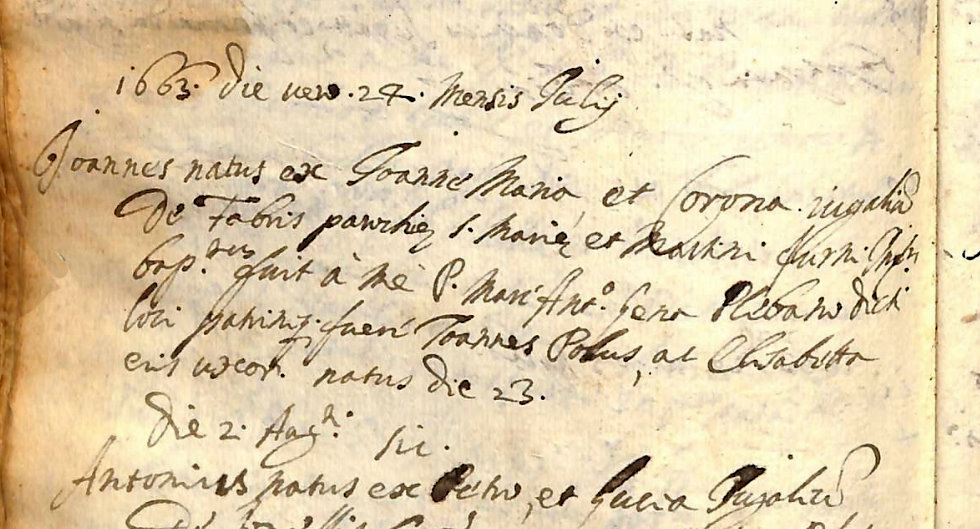 1663. die vero .24. Mensis Julij
Joannes natus ex Joanne Maria, et Corona iugalibus
De Fabris parochiæ S. Mariæ, et Martini furni
bap.tus fuit à me P. Marc' Ant.o Plebano dicti
loci patrini fuere Joannes Polus, ac Elisabetta
eius uxor. natus die 23.
Die 2. Aug.ti
sic.
Antonius natus ex Petro, et Lucia Jugalibus
De